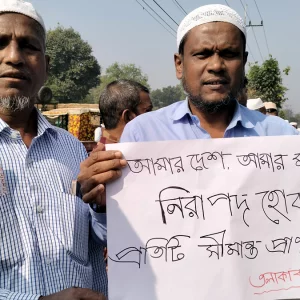 আমার দেশ, আমার
নিরাপদ হোক
প্রতিটি সীমান্ত প্রাণ